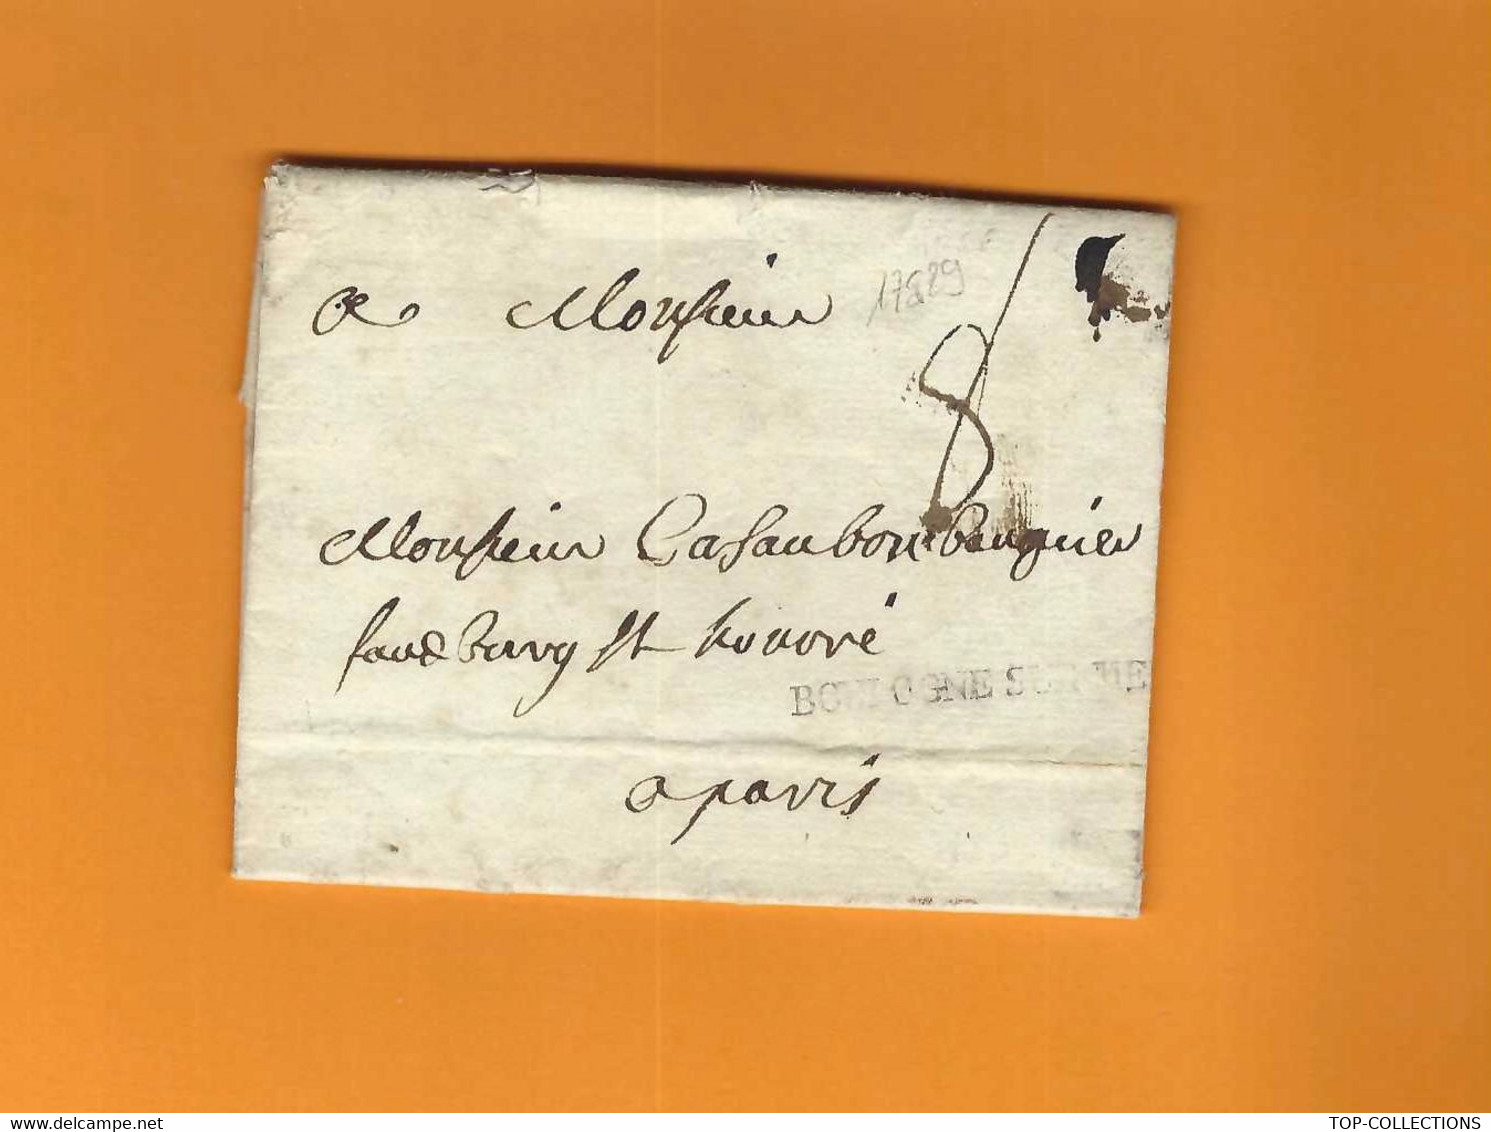 a Monsieur
17889
8
Monsieur Casaubon banquier
faux bourg St honoré
BOULOGNE SUR ME
a paris
www.delcampe.net
TOP-COLLECTIONS